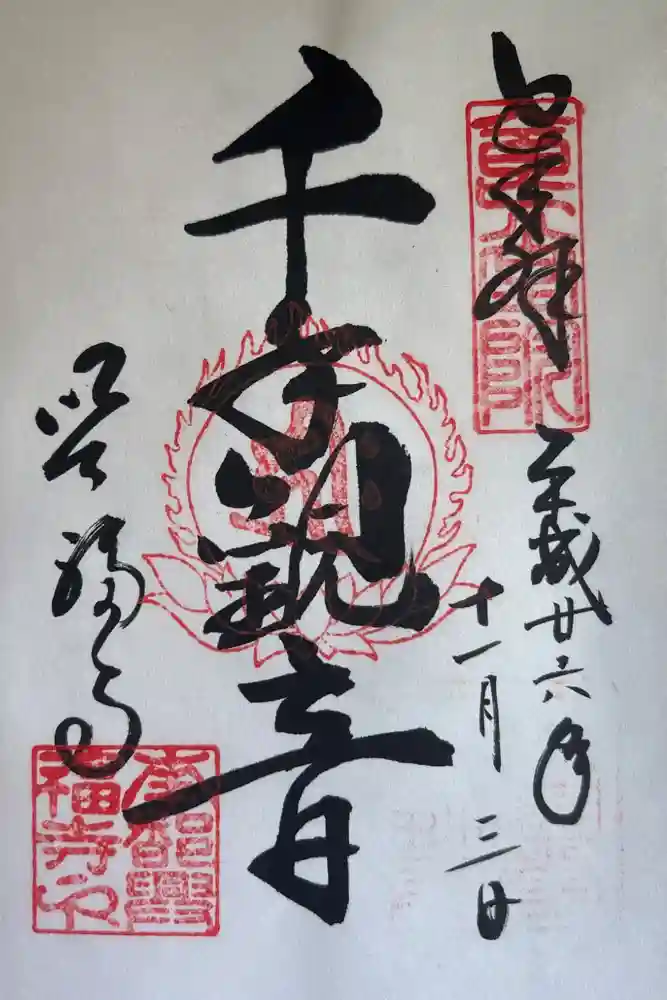 奉拝
平成廿六年
十一月三日
千手観音
興福寺